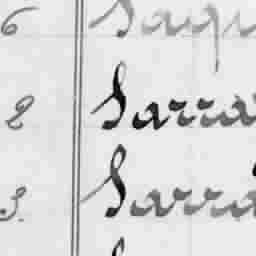 6 Saqu
2 Sarra
3. Sarra